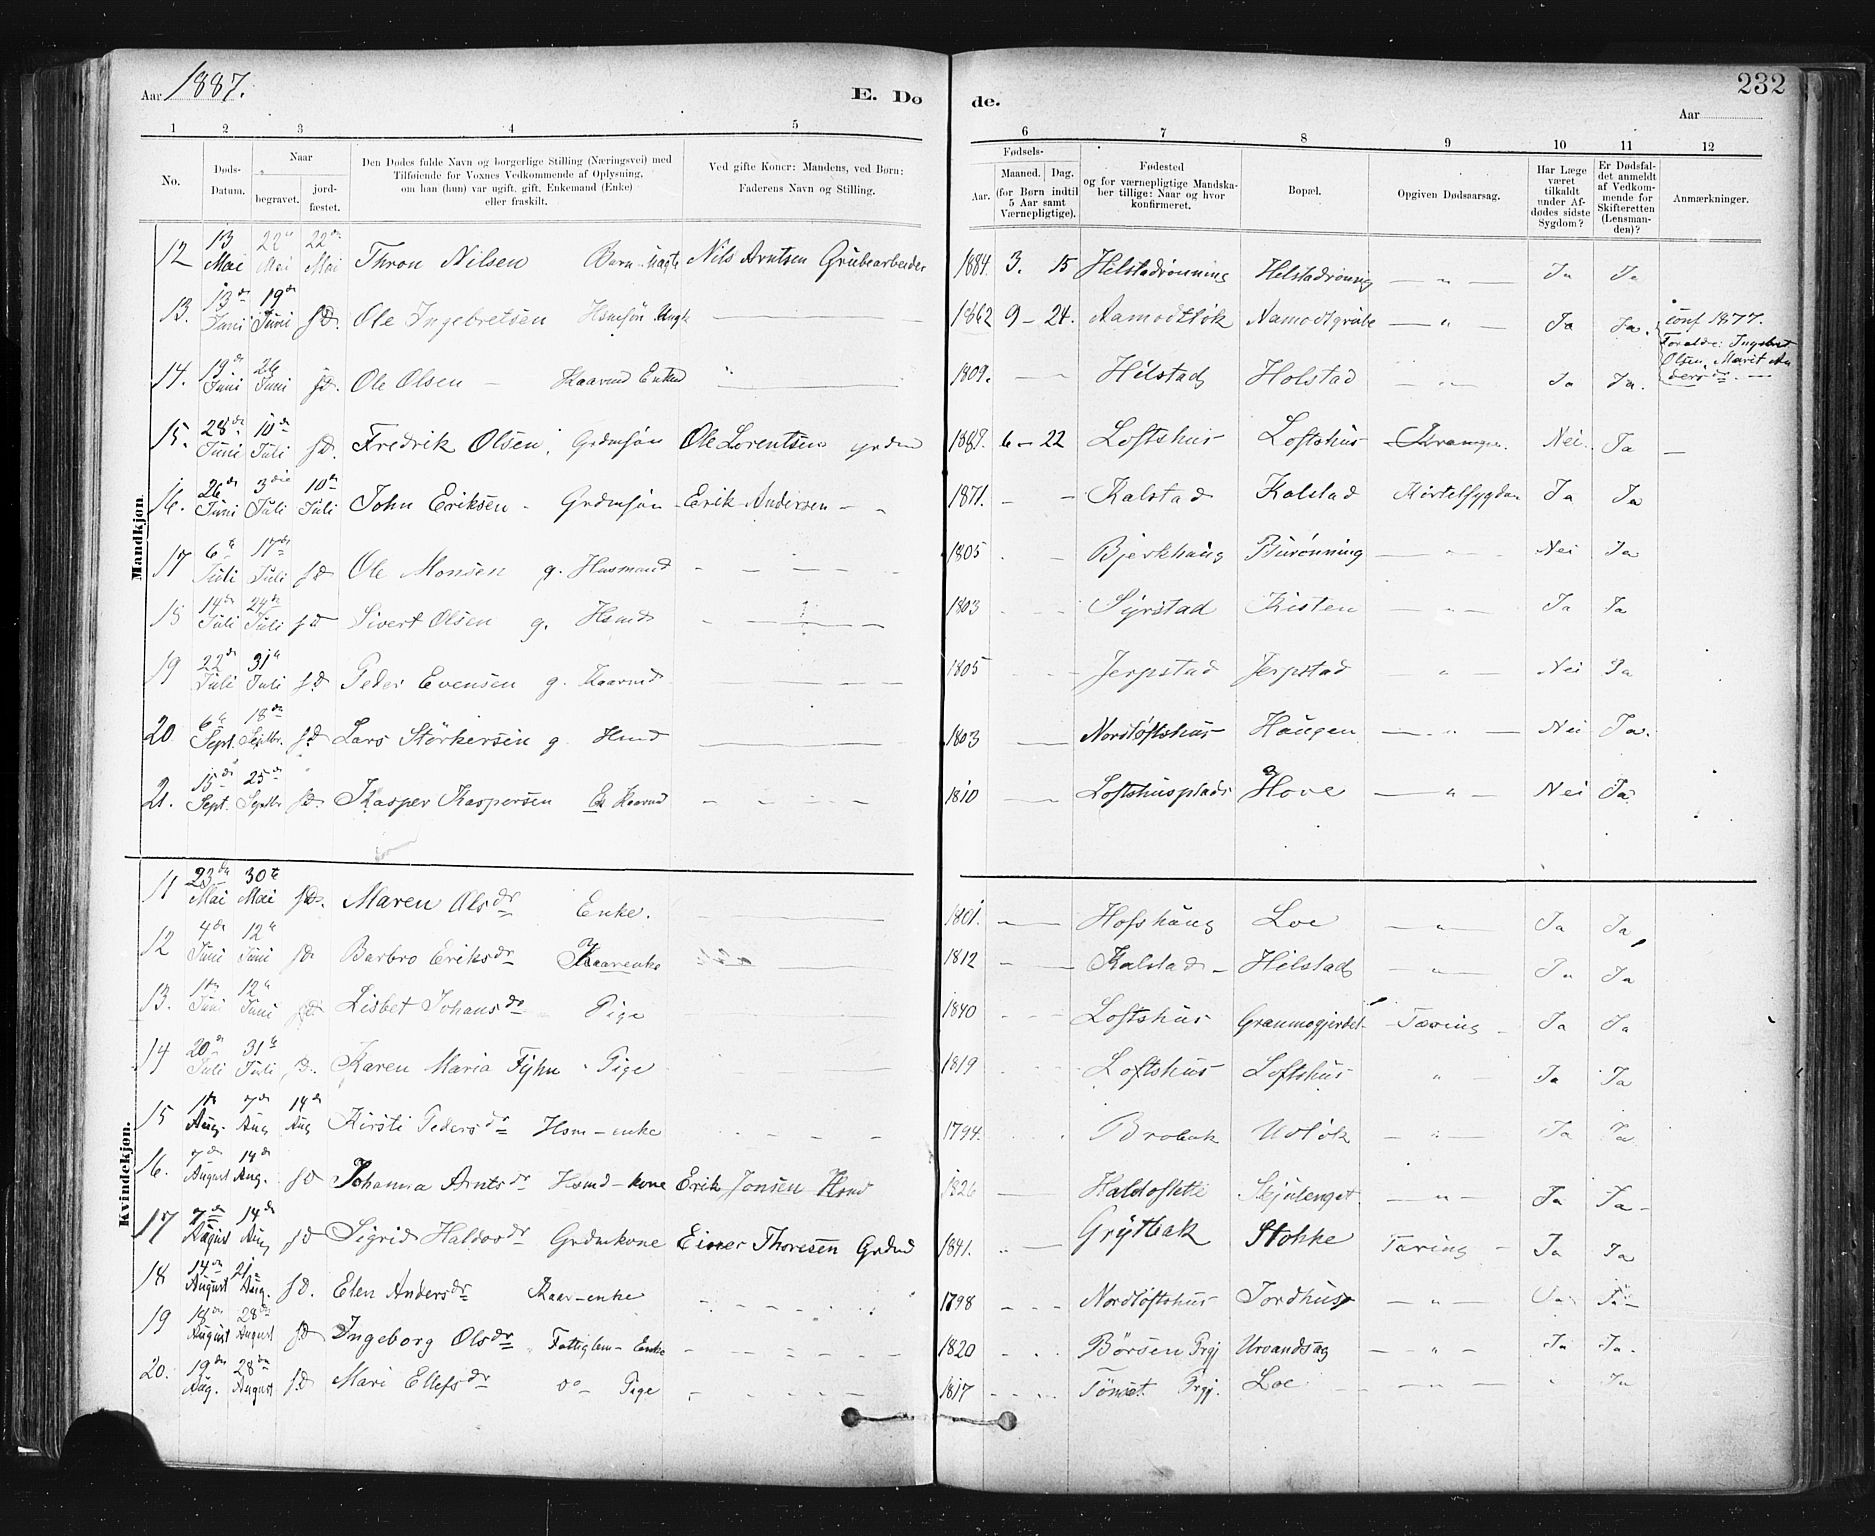 Aar 1887. E. Do de. 232
Aar
1 2 3 4 5 6 7 8 9 10 11 12
No. Døds-Datum. Naar begravet. jordfæstet. Den Dødes fulde Navn og borgerlige Stilling (Næringsvei) med Tilføiende for Voxnes Vedkommende af Oplysning, om han (hun) var ugift, gift, Enkemand (Enke) eller fraskilt. Ved gifte Koner: Mandens, ved Børn: Faderens Navn og Stilling. Fødsels- Aar. Maaned. Dag. (for Børn indtil 5 Aar samt Værnepligtige). Fødested og for værnepligtige Mandskaber tillige: Naar og hvor konfirmeret. Bopæl. Opgiven Dødsaarsag. Har Læge været tilkaldt under Afdødes sidste Sygdom? Er Dødsfaldet anmeldt af Vedkommende for Skifteretten (Lensmanden)? Anmærkninger.
Mandkjøn.
12 13 Mai 22de Mai 22de Mai Thron Nilsen Barn Nils Arntsen Grubearbeider 1884. 3. 15 Helstadrønning Helstadrønning — " — Ja Ja
13. 13de Juni 19de Juni fD. Ole Ingebretsen Hsmsøn Ungk 1862 9 – 24. Aamodtløk Aamodtgrube — " — Ja Ja. conf 1877. Forældre: Ingebret Olsen, Marit Andersdr. —
14. 19de Juni 26 Juni fD. Ole Olsen — Kaarmd Enkmd 1809. — — Hilstad Holstad — " — Ja Ja.
15. 28de Juni 10de Juli fD. Fredrik Olsen, Grdmsøn Ole Lorentsen grdmd 1887. 6 – 22 Loftshus Loftshus Krampe. Nei. Ja —
16. 26de Juni 3die Juli 10de Juli John Eriksen – Grdmsøn – Erik Andersen – 1871. - - Kalstad Kalstad Kirtelsygdom Ja Ja
17 6te Juli 17de Juli fD Ole Monsen g. Husmand 1805 Bjerkhaug Burønning — " — Nei Ja
18 14de Juli 24de Juli fD Sivert Olsen g. Hsmd 1803 Syrstad Kisten — " — Ja Ja
19 22de Juli 31te Juli fD Peder Evensen g. Kaarmd 1805 Jerpstad Jerpstad " Nei Ja
20 6te Sept. 18de Septbr. fD Lars Størkersen g. Hsmd 1803 — Nordløftshus Haugen — " — Nei Ja.
21. 15de Sept. 25de Septbr fD. Kasper Kaspersen E Kaarmd 1810 — Loftshusplads Hove — " — Nei Ja
Kvindekjøn.
11 23de Mai 30te Mai fD. Maren Olsdr Enke. 1801. — Hofshaug Loe " Ja Ja
12 4de Juni 12te Juni fD Barbro Eriksdr Kaarenke 1812 Kalstad – Hilstad — " — Ja Ja
13. 1ste Juni 12te Juni fD Lisbet Johansdr Pige 1840 Loftshus Granmogjerdet – Tæring – Ja Ja
14 20de Juli 31te Juli fD. Karen Maria Fyhn – Pige 1819 Loftshus Loftshus " Ja Ja
15 1ste Aug. 7de Aug 14de Aug Kirsti Pedersdr Hsm–enke 1794. Brobak Udløk — " — Ja Ja.
16. 7de August 14de Aug. fD Johanna Arntsdr Hsmd–kone Erik Jonsen Hsmd 1826 — Haldoslette Skjulenget — " — Ja Ja –
17 7de August 14de Aug fD Sigrid Haldosdr Grdmkone Einer Thoresen Grdmd 1841. " — Grytbak Stokke Tæring – Ja Ja
18 14de August 21. Aug. fD. Elen Andersdr Kaar–enke 1798 Nordløftshus Jordhus — " — Ja Ja –
19 18de August 28de August fD Ingeborg Olsdr Fattiglem – Enke 1820 Børsen Prgj Urvandsag — " — Ja Ja.
20. 19de Aug. 28de August fD Mari Ellefsdr do – Pige 1817 Tønset Prgj. Loe " Ja